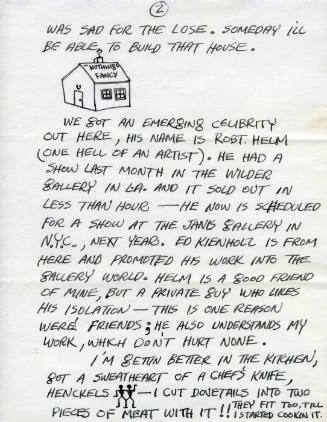 2
WAS SAD FOR THE LOSE. SOMEDAY I'LL
BE ABLE TO BUILD THAT HOUSE.
NOTHING
FANCY
WE GOT AN EMERGING CELIBRITY
OUT HERE, HIS NAME IS ROBT. HELM
(ONE HELL OF AN ARTIST). HE HAD A
SHOW LAST MONTH IN THE WILDER
GALLERY IN LA. AND IT SOLD OUT IN
LESS THAN HOUR — HE NOW IS SCHEDULED
FOR A SHOW AT THE JANIS GALLERY IN
N.Y.C., NEXT YEAR. ED KIENHOLZ IS FROM
HERE AND PROMOTED HIS WORK INTO THE
GALLERY WORLD. HELM IS A GOOD FRIEND
OF MINE, BUT A PRIVATE GUY WHO LIKES
HIS ISOLATION — THIS IS ONE REASON
WERE FRIENDS; HE ALSO UNDERSTANDS MY
WORK, WHICH DON'T HURT NONE.
I'M GETTIN BETTER IN THE KITCHEN,
GOT A SWEATHEART OF A CHEF'S KNIFE,
HENCKELS — I CUT DONETAILS INTO TWO
PIECES OF MEAT WITH IT!! THEY FIT TOO, TILL
I STARTED COOKIN IT.